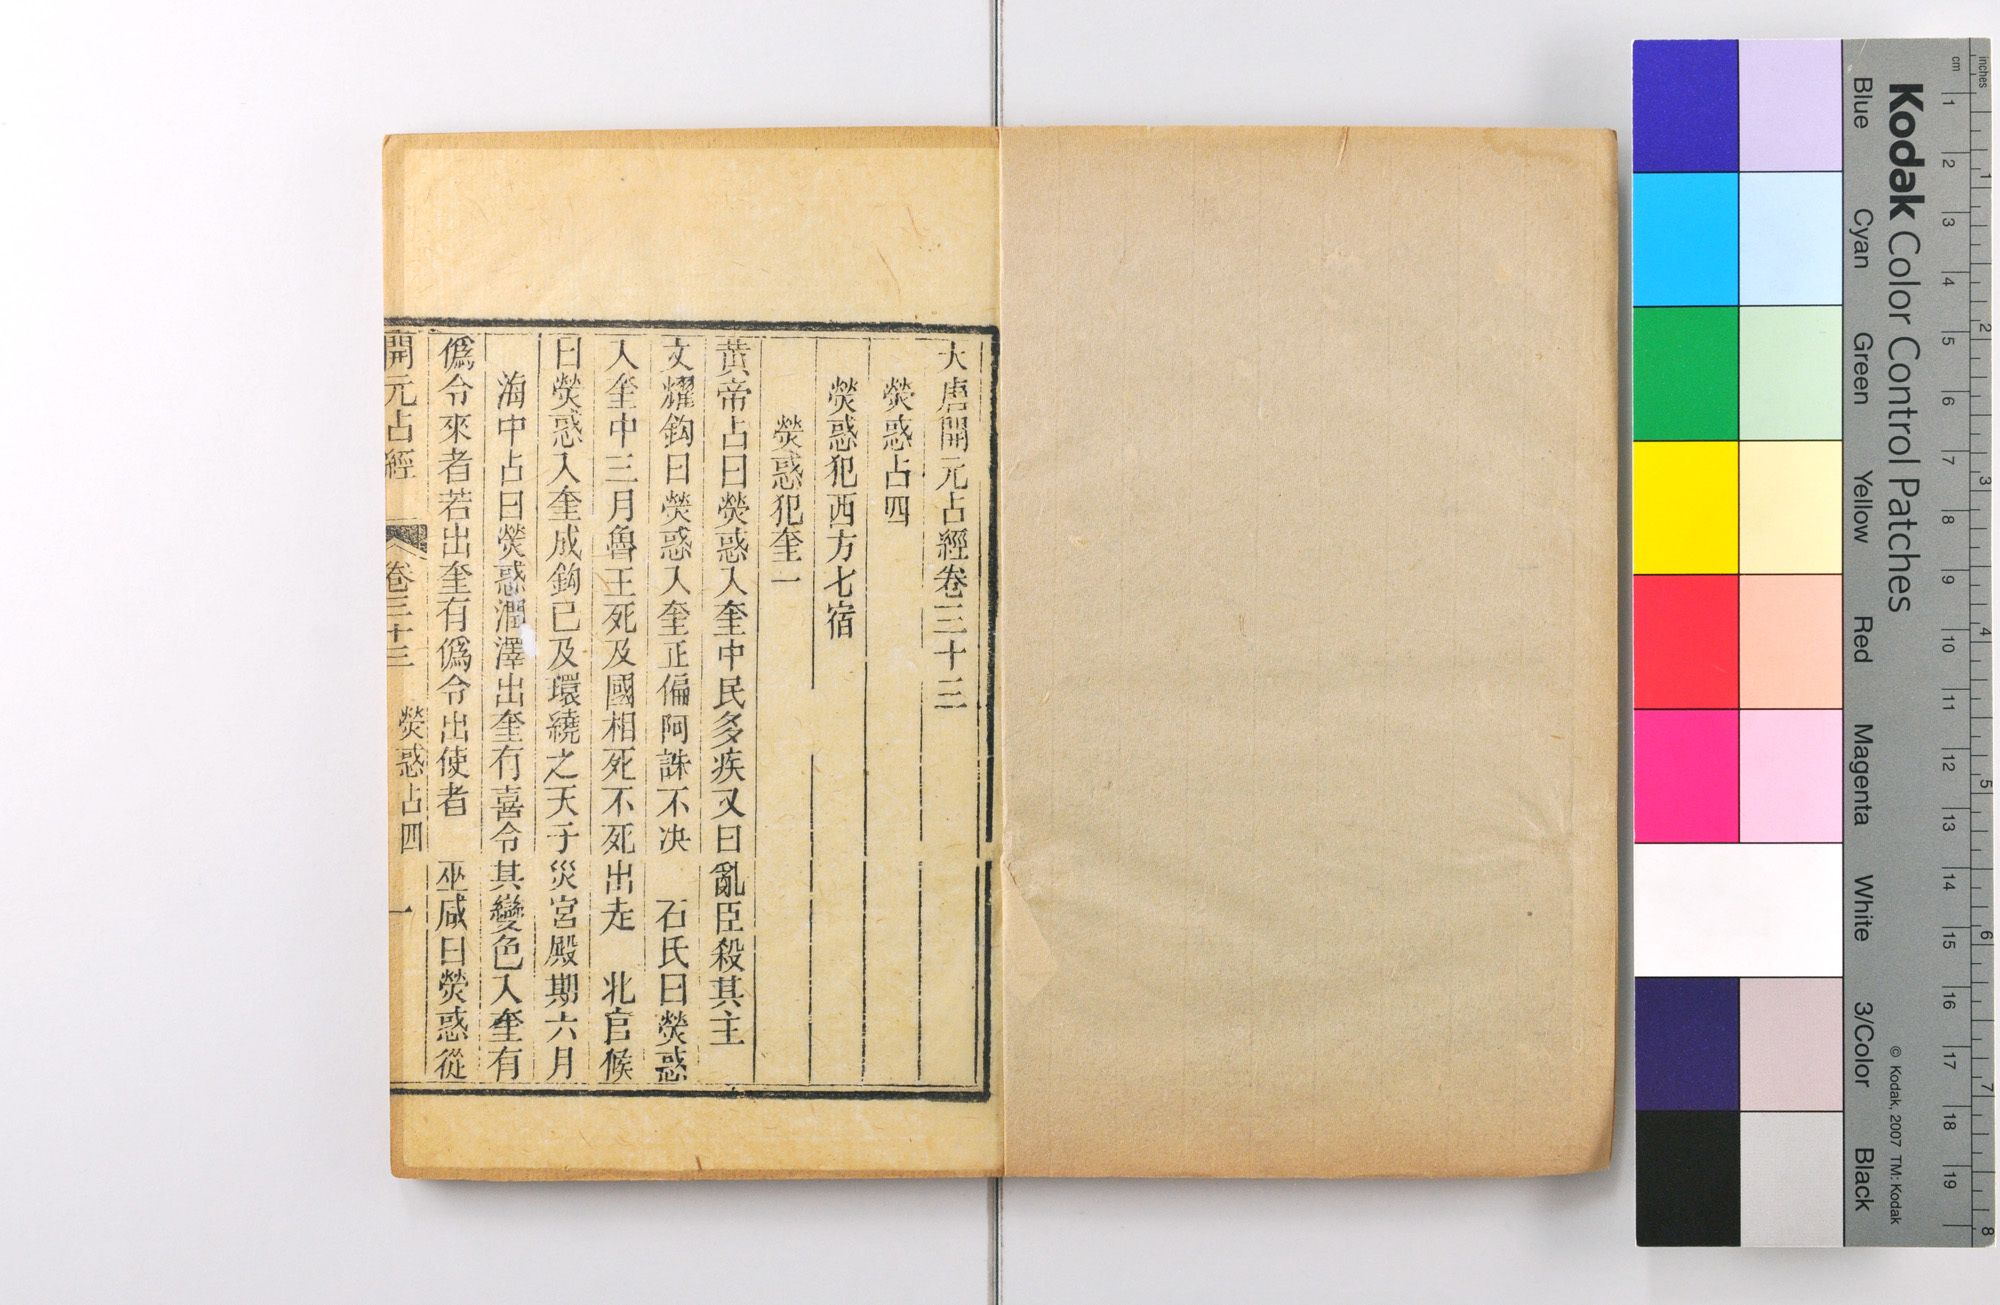 大唐開元占經卷三十三
熒惑占四
熒惑犯西方七宿
熒惑犯奎一
黃帝占曰熒惑入奎中民多疾又曰亂臣殺其主
文耀鈎曰熒惑入奎正偏阿誅不决　石氏曰熒惑
入奎中三月魯王死及國相死不死出走　北官候
曰熒惑入奎成鈎已及環繞之天子災宮殿期六月
海中占曰熒惑潤澤出奎有喜令其變色入奎有
僞令來者若出奎有僞令出使者　巫咸曰熒惑從
開元占經　卷三十三　熒惑占四　一
Kodak Color Control Patches
Blue
Cyan
Green
Yellow
Red
Magenta
White
3/Color
Black
© Kodak, 2007 TM: Kodak
cm 1 2 3 4 5 6 7 8 9 10 11 12 13 14 15 16 17 18 19
inches 1 2 3 4 5 6 7 8